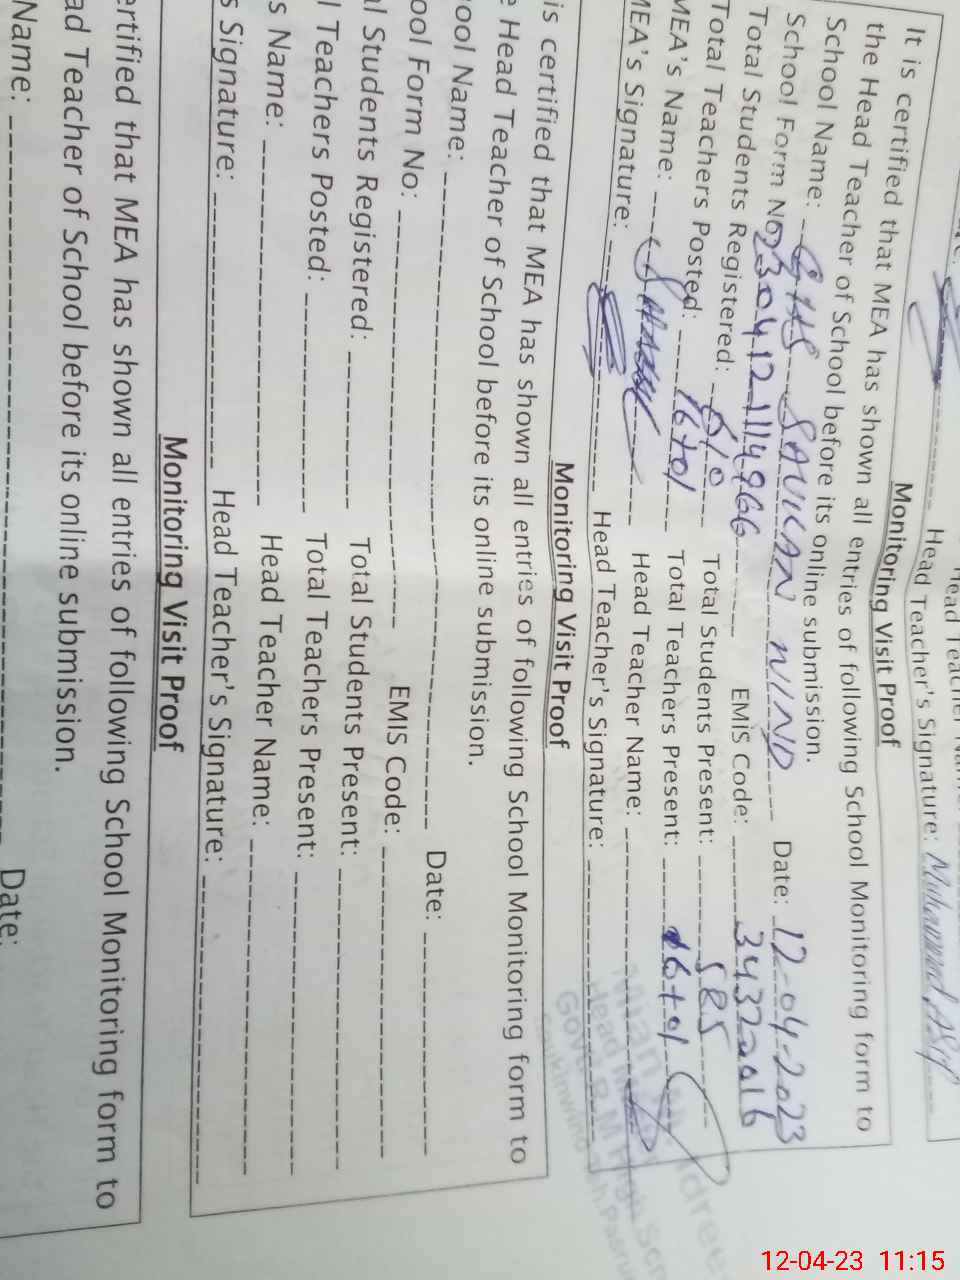 Head Teacher
Head Teacher's Signature: Muhammad Asif
Monitoring Visit Proof
It is certified that MEA has shown all entries of following School Monitoring form to
the Head Teacher of School before its online submission.
School Name: GHS SAUKAN WIND Date: 12-04-2023
School Form No: EMIS Code: 34320016
Total Students Registered: 610 Total Students Present: 585
Total Teachers Posted: 16+01 Total Teachers Present: 16+01
MEA's Name: Head Teacher Name:
MEA's Signature: Head Teacher's Signature:
Head
Govt.
Monitoring Visit Proof
is certified that MEA has shown all entries of following School Monitoring form to
e Head Teacher of School before its online submission.
ool Name: Date:
ool Form No: EMIS Code:
al Students Registered: Total Students Present:
l Teachers Posted: Total Teachers Present:
s Name: Head Teacher Name:
s Signature: Head Teacher's Signature:
Monitoring Visit Proof
ertified that MEA has shown all entries of following School Monitoring form to
ad Teacher of School before its online submission.
Name: Date:
12-04-23 11:15